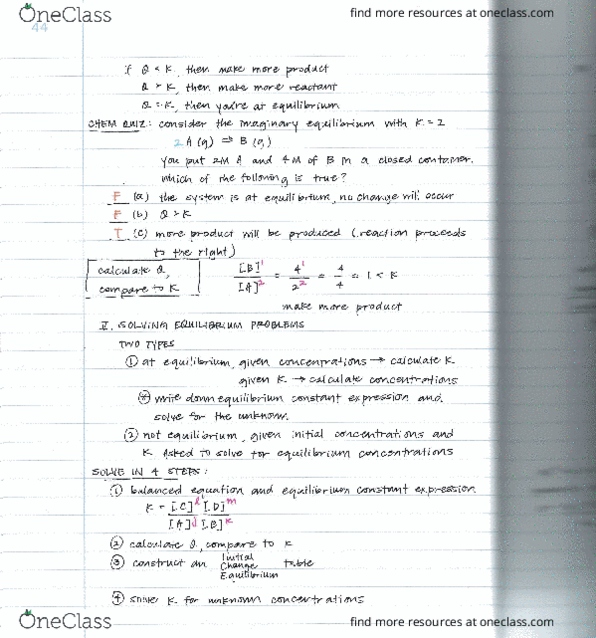 OneClass
find more resources at oneclass.com
44
if Q < K, then make more product
Q > K, then make more reactant
Q = K, then you're at equilibrium
CHEM QUIZ: consider the imaginary equilibrium with K = 2
2 A (g) ⇌ B (g)
You put 2M A and 4M of B in a closed container.
Which of the following is true?
F (a) the system is at equilibrium, no change will occur
F (b) Q > K
T (c) more product will be produced (reaction proceeds
to the right)
calculate Q,
compare to K
[B]¹ / [A]² = 4¹ / 2² = 4 / 4 = 1 < K
make more product
V. SOLVING EQUILIBRIUM PROBLEMS
TWO TYPES
① at equilibrium, given concentrations → calculate K
given K → calculate concentrations
write down equilibrium constant expression and
solve for the unknown.
② not equilibrium, given initial concentrations and
K Asked to solve for equilibrium concentrations
SOLVE IN 4 STEPS:
① balanced equation and equilibrium constant expression
K = [C]ˡ [D]ᵐ / [A]ʲ [B]ᵏ
② calculate Q, compare to K
③ construct an Initial Change Equilibrium table
④ solve K for unknown concentrations
OneClass
find more resources at oneclass.com